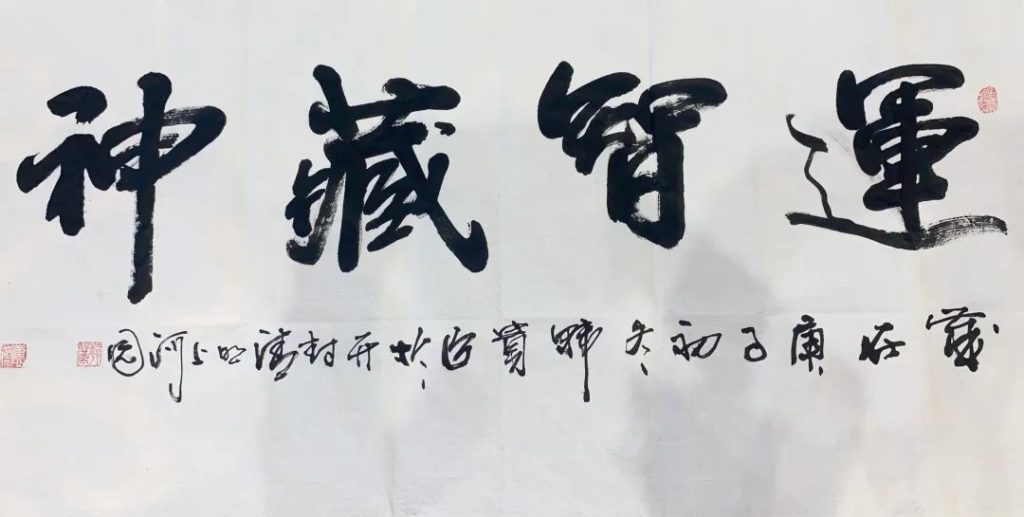 運智藏神
歲在庚子初冬 於开封清明上河园